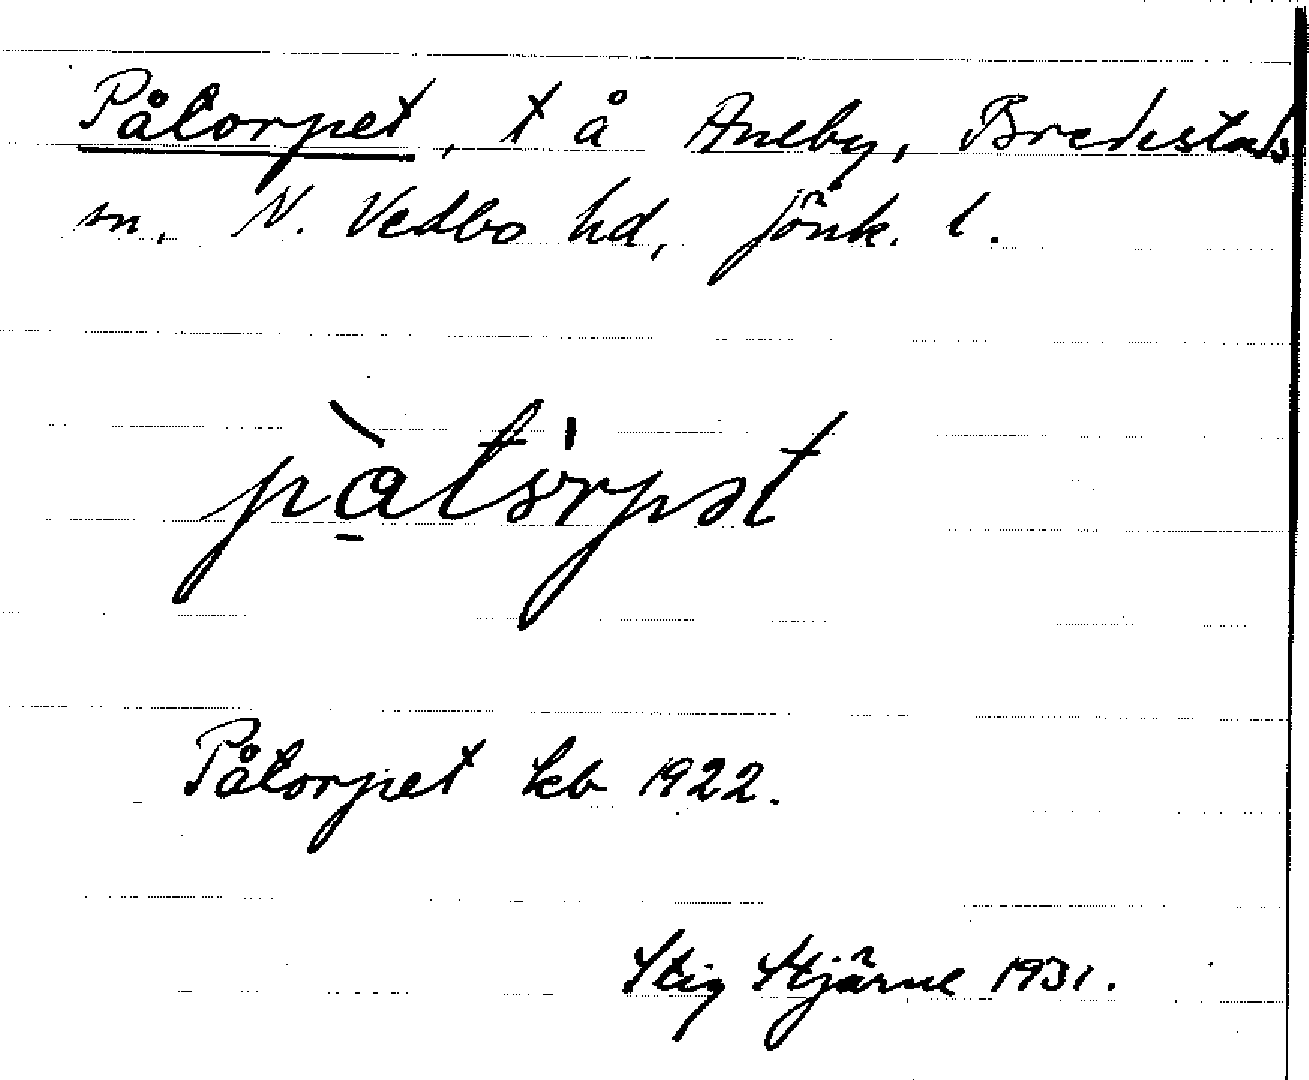 Påtorpet, t å Aneby, Bredestads
sn, N. Vedbo hd, Jönk. l.
pàtórpət
Påtorpet kb 1922.
Stig Stjärne 1931.